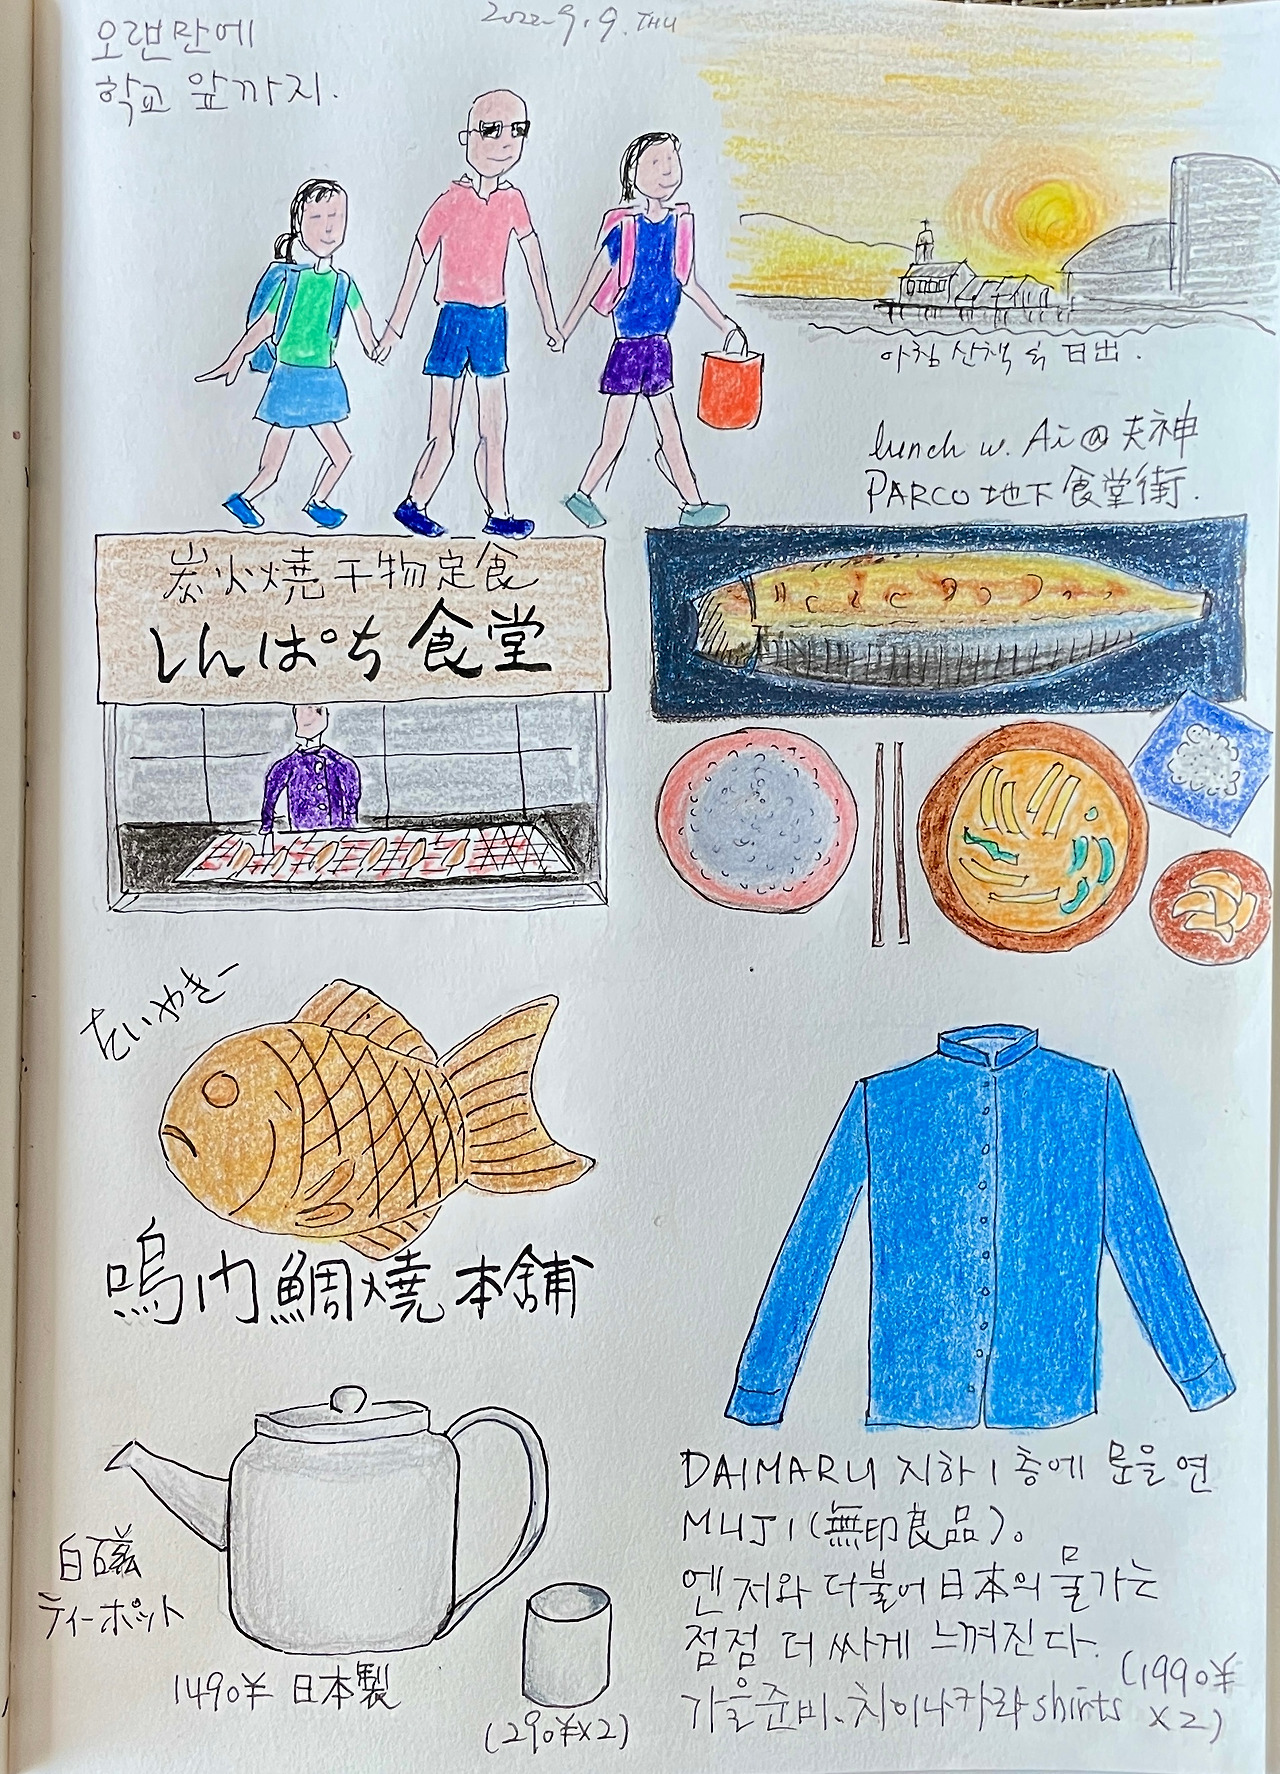 2022.9.9. THU
오랜만에
학교 앞까지.
아침 산책 속 日出.
lunch w. Ai @ 天神
PARCO 地下 食堂街.
炭火焼 干物定食
しんぱち 食堂
たいやきー
鳴門鯛焼本舗
白磁
ティーポット
1490¥ 日本製
(290¥x2)
DAIMARU 지하 1층에 문을 연
MUJI (無印良品)。
엔저와 더불어 日本의 물가는
점점 더 싸게 느껴진다.
가을준비、차이나카라 shirts (1990¥
x2)